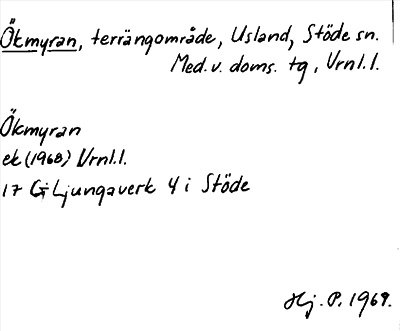 Ökmyran, terrängområde, Usland, Stöde sn.
Med. v. doms. tg, Vrnl.l.
Ökmyran
ek (1968) Vrnl.l.
17 G Ljungaverk 4 i Stöde
Hj. P. 1969.